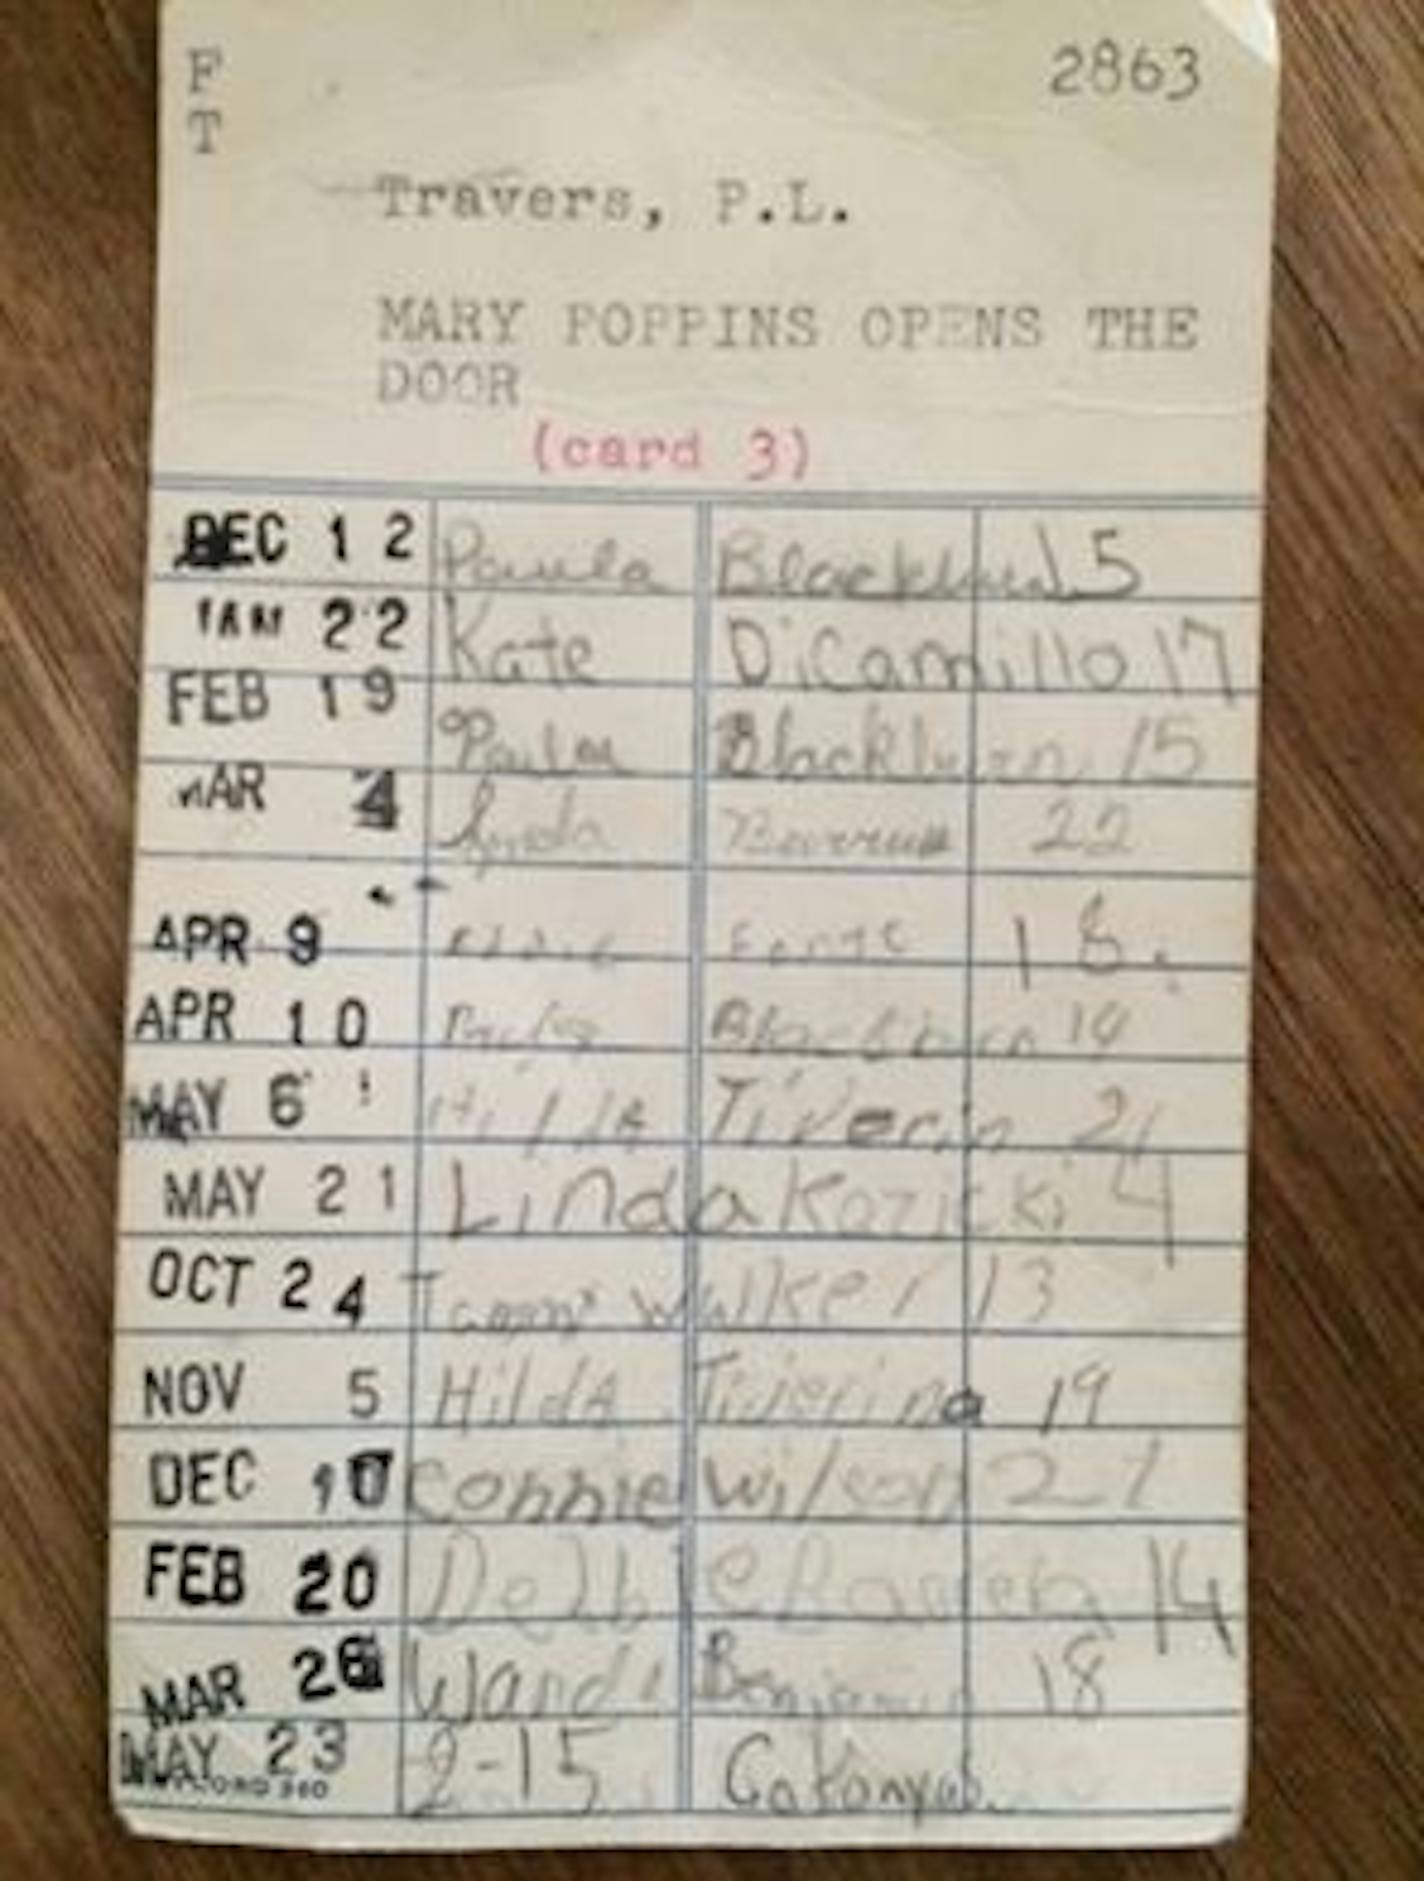 F 2863
T
Travers, P.L.
MARY POPPINS OPENS THE
DOOR
(card 3)
DEC 12 Paula Blackburn 15
JAN 22 Kate DiCamillo 17
FEB 19 Paula Blackburn 15
MAR 4 Lynda 22
APR 9 18
APR 10 Blackburn 14
MAY 6 Hilda Tijerin 21
MAY 21 Linda Kozicki 4
OCT 24 Tammy Walker 13
NOV 5 Hilda Tijerina 19
DEC 10 Connie Wilson 21
FEB 20 14
MAR 26 Wandi Benjamin 18
MAY 23 2-15